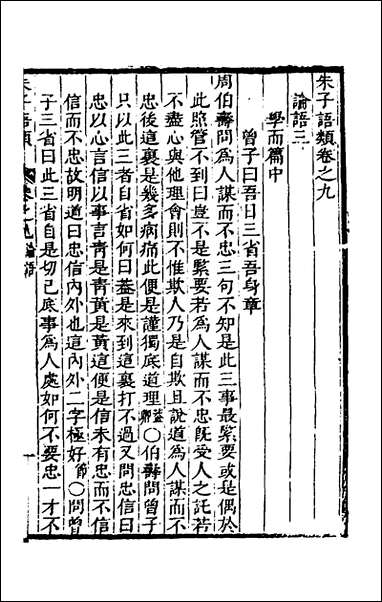 朱子語類卷之九
論語三
學而篇中
曾子曰吾日三省吾身章
周伯壽問爲人謀而不忠三句不知是此三事最緊要或是偶於
此照管不到曰豈不是緊要若爲人謀而不忠旣受人之託若
不盡心與他理會則不惟欺人乃是自欺且說道爲人謀而不
忠後這裏是幾多病痛此便是謹獨底道理蓋卿〇伯壽問曾子
只以此三者自省如何曰蓋是來到這裏打不過又問忠信曰
忠以心言信以事言靑是靑黃是黃這便是信未有忠而不信
信而不忠故明道曰忠信內外也這內外二字極好節〇問曾
子三省曰此三省自是切己底事爲人處如何不要忠一才不
朱子語類 卷之九論語 一